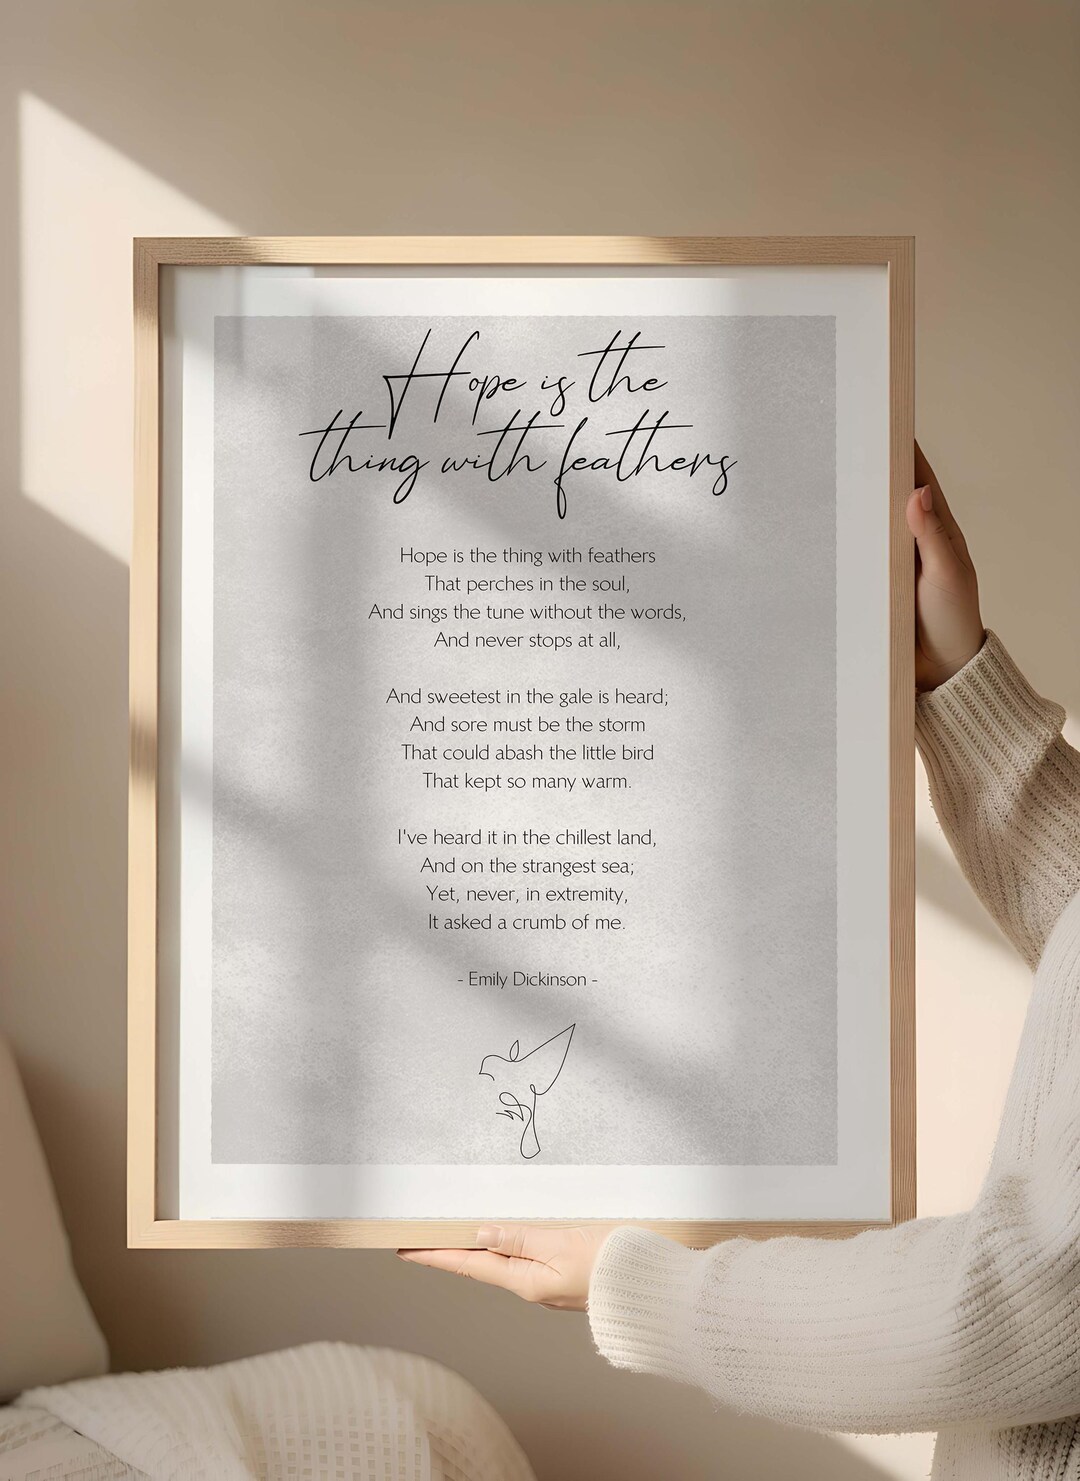 Hope is the
thing with feathers
Hope is the thing with feathers
That perches in the soul,
And sings the tune without the words,
And never stops at all,
And sweetest in the gale is heard;
And sore must be the storm
That could abash the little bird
That kept so many warm.
I've heard it in the chillest land,
And on the strangest sea;
Yet, never, in extremity,
It asked a crumb of me.
- Emily Dickinson -